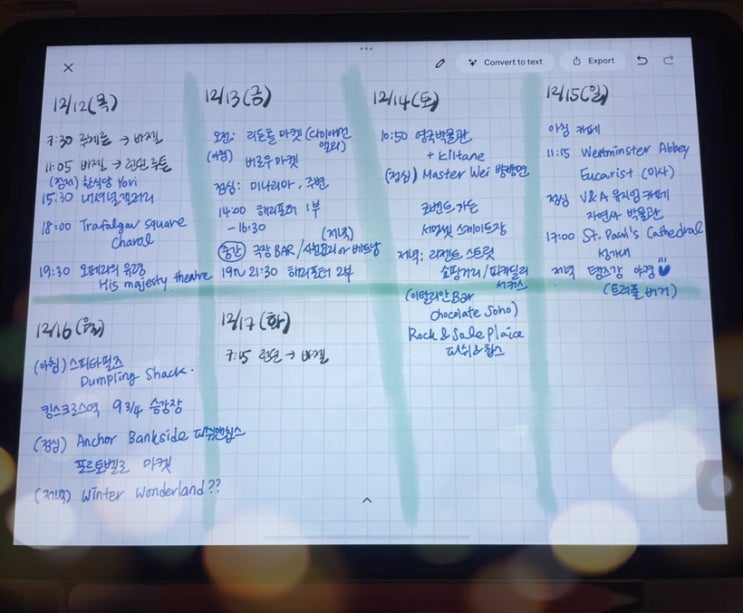 Convert to text
Export
12/12(목)
7:30 루체른 → 바젤
11:05 바젤 → 런던 루튼
(점심) 한식당 Yori
15:30 내셔널갤러리
18:00 Trafalgar Square
Charal
19:30 오페라의 유령
His majesty theatre
12/13(금)
오전: 리든홀 마켓 (다이애건
앨리)
(아침) 버로우 마켓
점심: 미나리아, 주변
14:00 해리포터 1부
- 16:30
(저녁)
(중간) 극장 BAR /
베트남
19시 21:30 해리포터 2부
12/14(토)
10:50 영국박물관
+
(점심) Master Wei 뱡뱡면
코벤트 가든
서머셋 스케이트장
저녁: 리젠트 스트릿
쇼핑거리/피카딜리
서커스
(이탈리안Bar
chocolate Soho)
Rock & Sole Plaice
피쉬&칩스
12/15(일)
아침 카페
11:15 Westminster Abbey
Eucarist (미사)
점심 V&A 뮤지엄 카페
자연사 박물관
17:00 St. Paul's Cathedral
성가대
저녁 템즈강 야경
(트러플 버거)
12/16(월)
(아침) 스피타필즈
Dumpling Shack.
킹스크로스역 9 3/4 승강장
(점심) Anchor Bankside 피쉬앤칩스
포르토벨로 마켓
(저녁) Winter Wonderland??
12/17(화)
7:15 런던 → 바젤